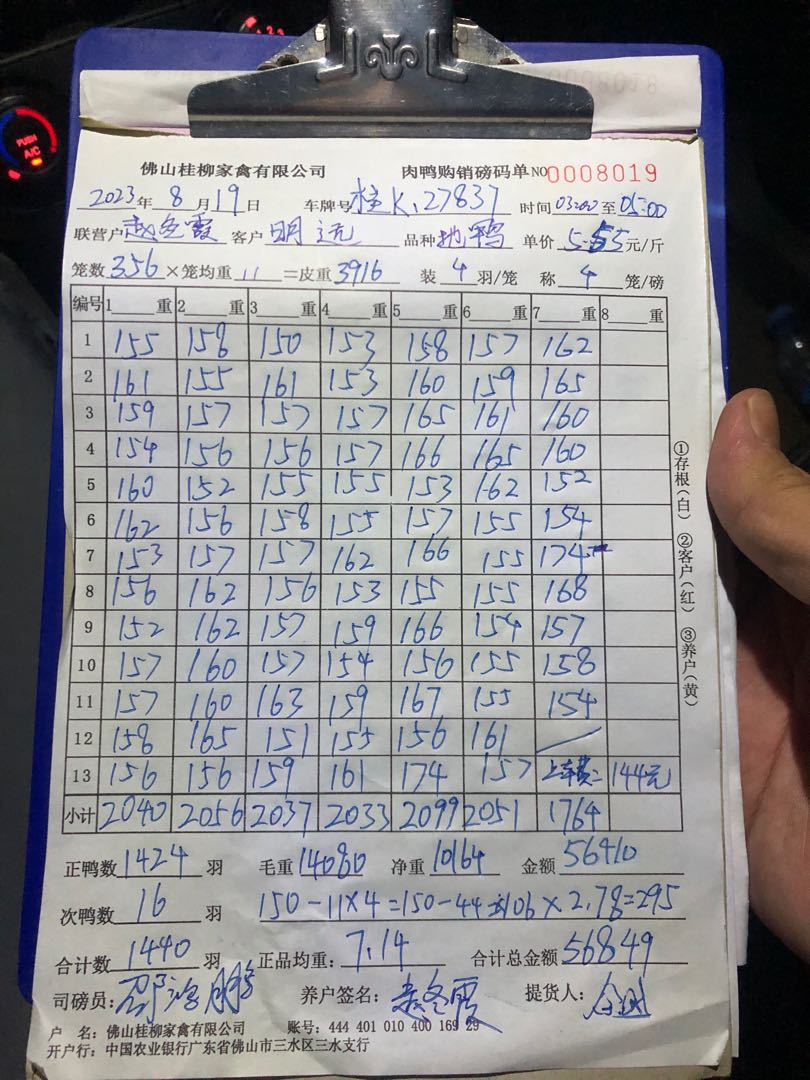 佛山桂柳家禽有限公司 肉鸭购销磅码单 NO 0008019
2023年 8月19日 车牌号 桂K.27837 时间 03:00至05:00
联营户 赵冬霞 客户 明远 品种 抛鸭 单价 5.55 元/斤
笼数 356 ×笼均重 11 =皮重 3916 装 4 羽/笼 称 4 笼/磅
编号 1 重 2 重 3 重 4 重 5 重 6 重 7 重 8 重
1 155 158 150 153 158 157 162
2 161 155 161 153 160 159 165
3 159 157 157 157 165 161 160
4 154 156 156 157 166 165 160
5 160 152 155 155 153 162 152
6 162 156 158 155 157 155 154
7 153 157 157 162 166 155 174
8 156 162 156 153 155 155 168
9 152 162 157 159 166 154 157
10 157 160 157 154 156 155 158
11 157 160 163 159 167 155 154
12 158 165 151 155 156 161 /
13 156 156 159 161 174 157 上车费: 144元
小计 2040 2056 2037 2033 2099 2051 1764
正鸭数 1424 羽 毛重 14080 净重 10164 金额 56410
次鸭数 16 羽 150-11×4=150-44=106×2.78=295
合计数 1440 羽 正品均重: 7.14 合计总金额 56849
司磅员: 养户签名: 赵冬霞 提货人:
户 名: 佛山桂柳家禽有限公司 账号: 444 401 010 400 169 29
开户行: 中国农业银行广东省佛山市三水区三水支行
①存根(白) ②客户(红) ③养户(黄)
PUSH
A/C